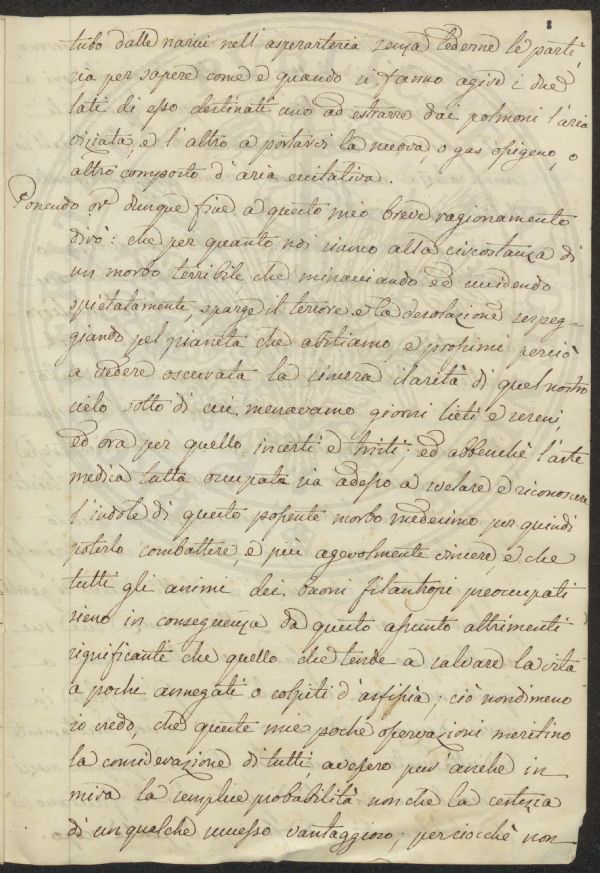 8
tubo dalle narici nell'asperarteria senza lederne le parti,
sia per sapere come e quando si fanno agire i due
lati di esso destinati uno ad estrarre dai polmoni l'aria
viziata, e l'altro a portarvi la nuova, o gas ossigeno, o
altro composto d'aria eccitativa.
Ponendo or dunque fine a questo mio breve ragionamento
dirò: che per quanto noi siamo alla circostanza di
un morbo terribile che minacciando ed uccidendo
spietatamente, sparge il terrore e la desolazione serpeg-
giando pel pianeta che abitiamo e prossimi perciò
a vedere oscurata la sincera ilarità di quel nostro
cielo sotto di cui menavamo giorni lieti e sereni,
ed ora per quello incerti e tristi; ed abbenchè l'arte
medica tutta occupata sia adesso a svelare e riconoscere
l'indole di questo possente morbo medesimo per quindi
poterlo combattere, e più agevolmente vincere, e che
tutti gli animi dei buoni filantropi preoccupati
sieno in conseguenza da questo assunto altrimenti
significante che quello che tende a salvare la vita
a pochi annegati o colpiti d'asfissia; ciò nondimeno
io credo, che queste mie poche osservazioni meritino
la considerazione di tutti, avessero pur anche in
mira la semplice probabilità non che la certezza
di un qualche successo vantaggioso; perciocchè non